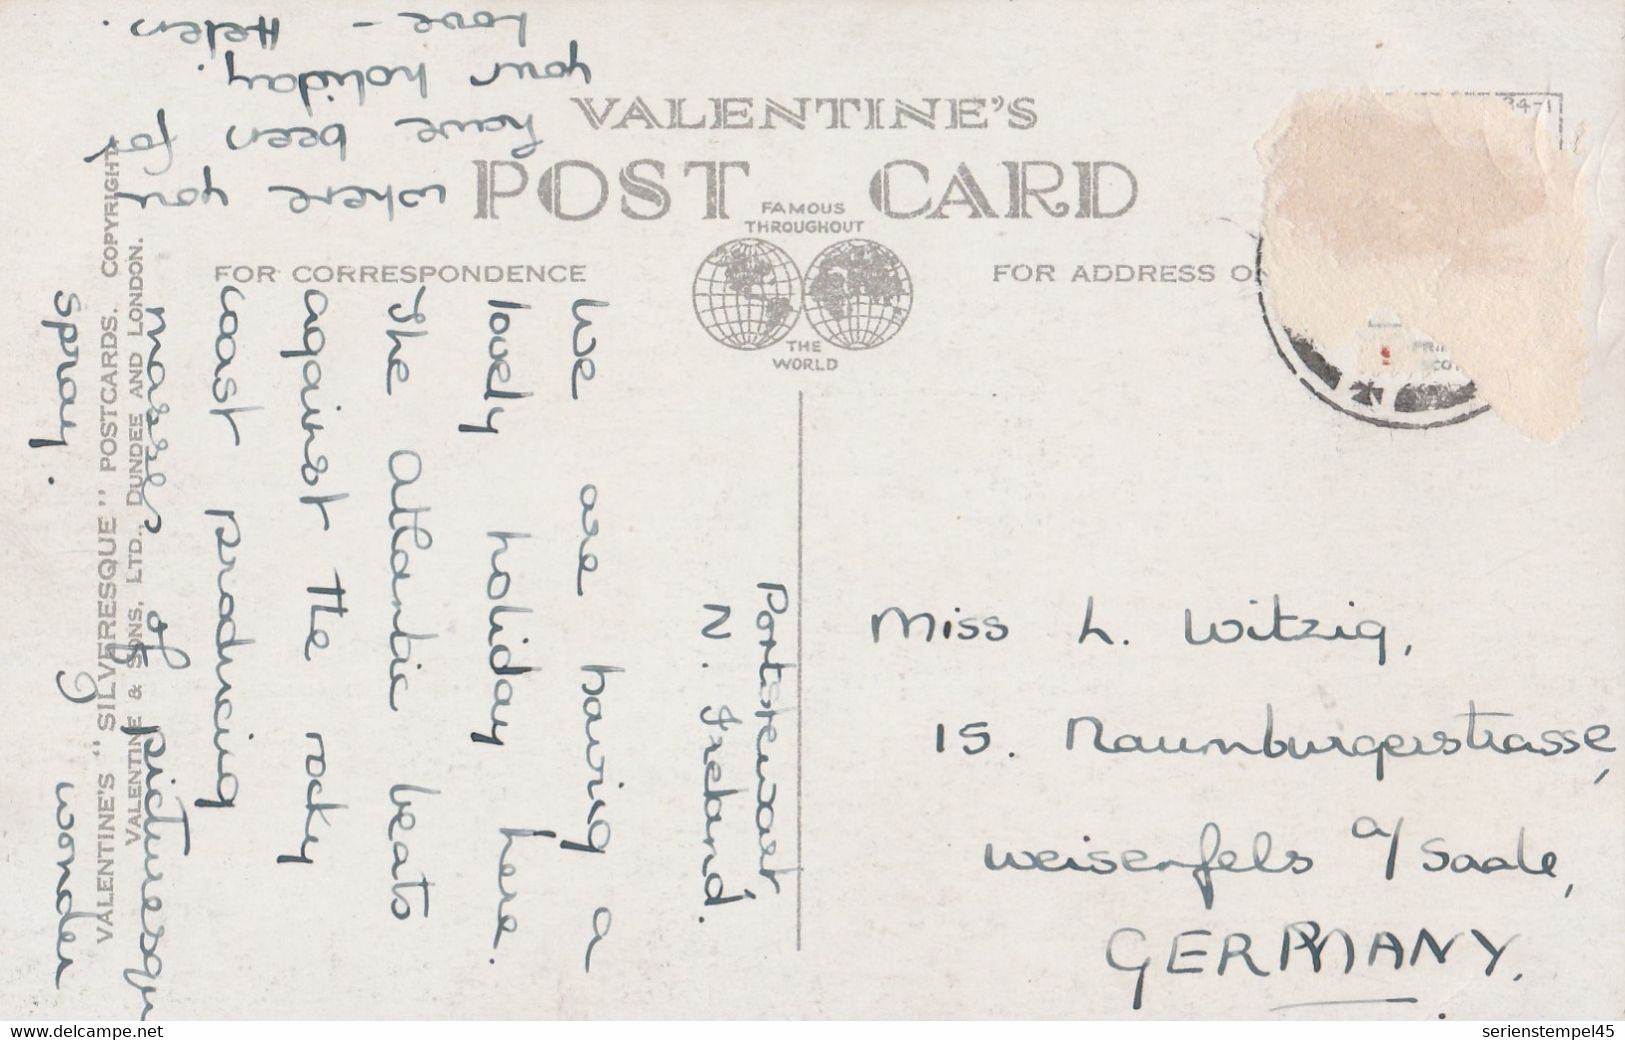 VALENTINE'S
POST CARD
FAMOUS
THROUGHOUT
THE
WORLD
FOR CORRESPONDENCE
FOR ADDRESS O
34-1
Portstewart
N. Ireland.
We are having a
lovely holiday here.
The Atlantic beats
against the rocky
coast producing
masses of picturesqu
spray. I wonder
where you
have been for
your holiday.
Love - Helen.
VALENTINE'S "SILVERESQUE" POSTCARDS. COPYRIGHT
VALENTINE & SONS, LTD., DUNDEE AND LONDON.
Miss L. Witzig,
15. Naumburgerstrasse,
Weisenfels a/Saale,
GERMANY.
www.delcampe.net
serienstempel45